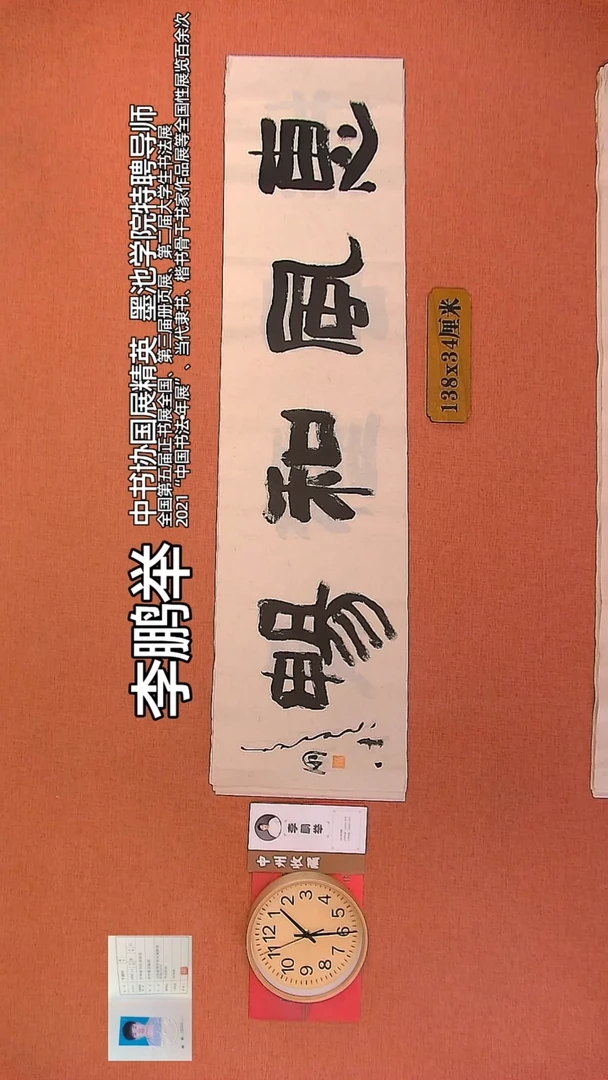 李鹏举
中书协国展精英 墨池学院特聘导师
全国第五届正书展全国、第三届册页展、第二届大学生书法展
2021“中国书法年展”、当代隶书、楷书骨干书家作品展等全国性展览百余次
惠風和暢
138x34厘米
李鹏举
中州收藏
12 1 2 3 4 5 6 7 8 9 10 11